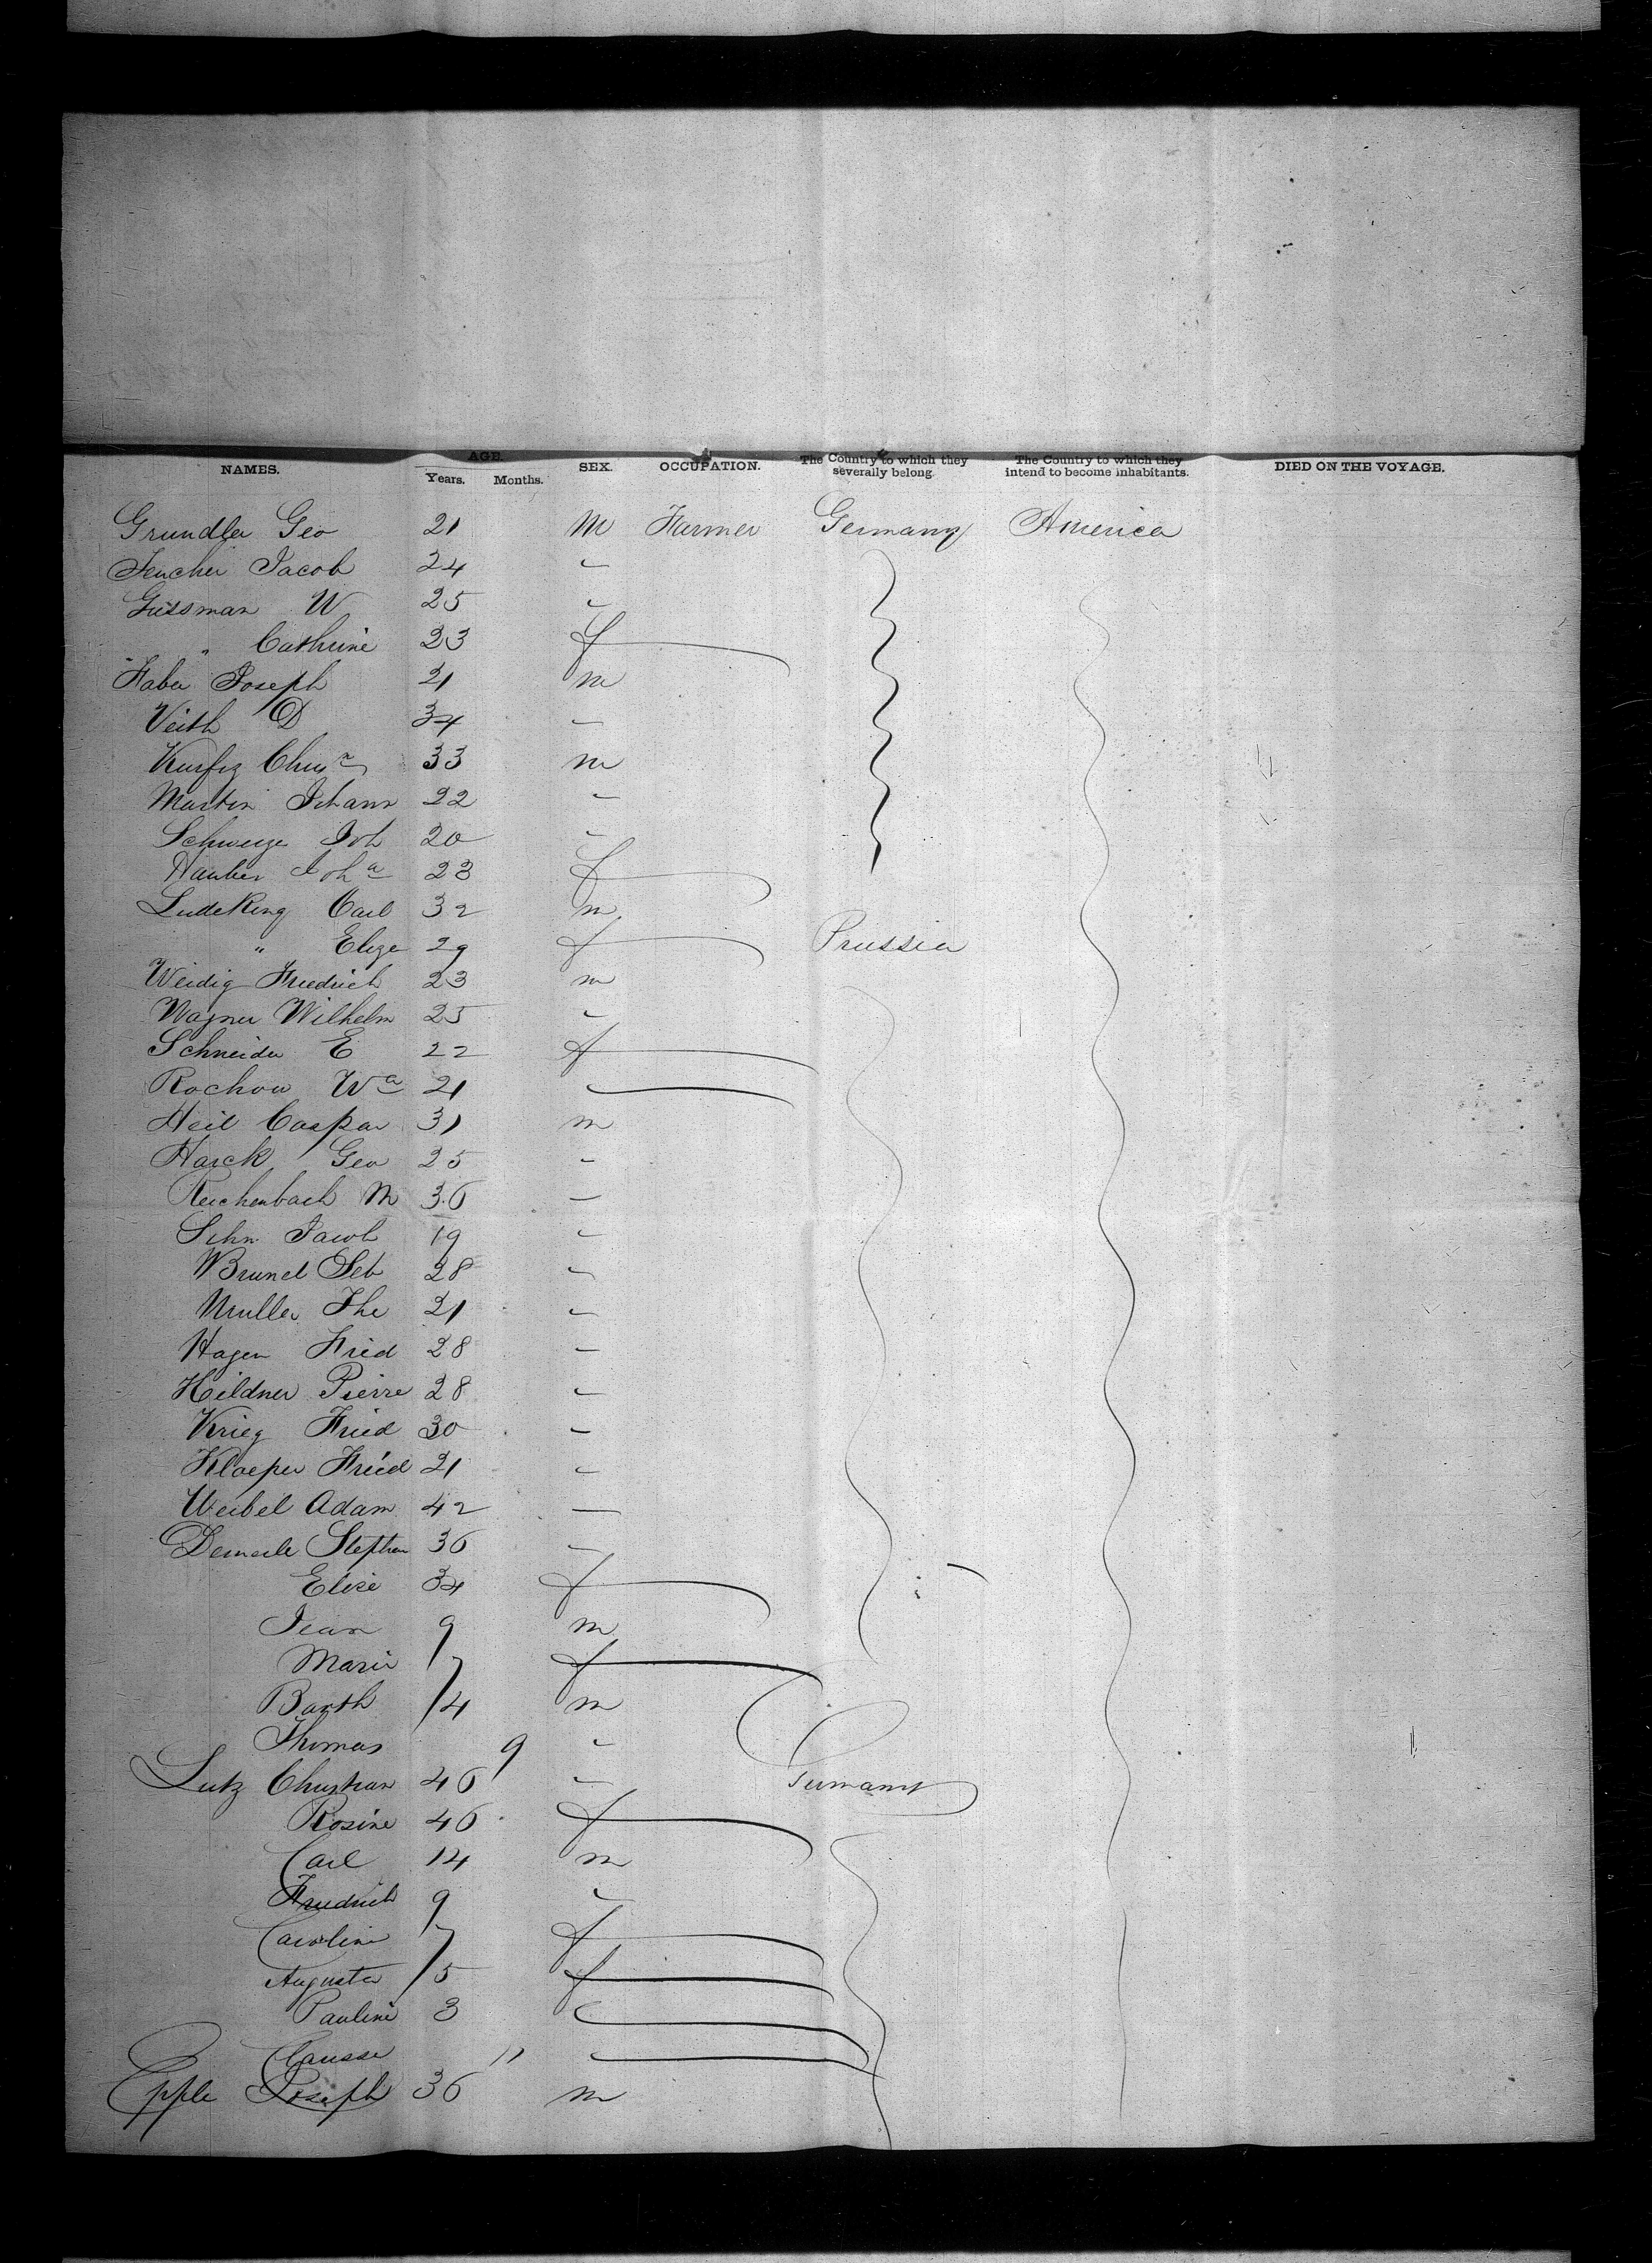 NAMES. AGE. Years. Months. SEX. OCCUPATION. The Country to which they severally belong. The Country to which they intend to become inhabitants. DIED ON THE VOYAGE.
Grundler Geo 21 M Farmer Germany America
Jacob 24 "
Gussman W 25 "
" Catherine 23 f
Faber Joseph 21 m
Veith D 34 "
Kurfiz Chrisn 33 m
Martin Johann 22 "
Schweize Joh 20 "
Hauber Joha 23 f
Ludeking Carl 32 m
" Elize 29 f Prussia
Weidig Friedrich 23 m
Wagner Wilhelm 25 "
Schneider E 22 f
Rochow Wa 21 "
Heil Caspar 31 m
Harck Geo 25 "
Reichenbach M 36 "
Sehn Jacob 19 "
Brunel Seb 28 "
Muller The 21 "
Hagen Fried 28 "
Heildner Pierre 28 "
Krieg Fried 30 "
Kloeper Fried 21 "
Weibel Adam 42 "
Demerle Stephan 36 "
Elise 34 f
Jean 9 m
Marie 7 f
Barth 4 m
Thomas 9 "
Lutz Christian 46 " Germany
Rosine 46 f
Carl 14 m
Friedrich 9 "
Caroline 7 f
Auguste 5 f
Pauline 3 "
11 "
Epple Joseph 36 m